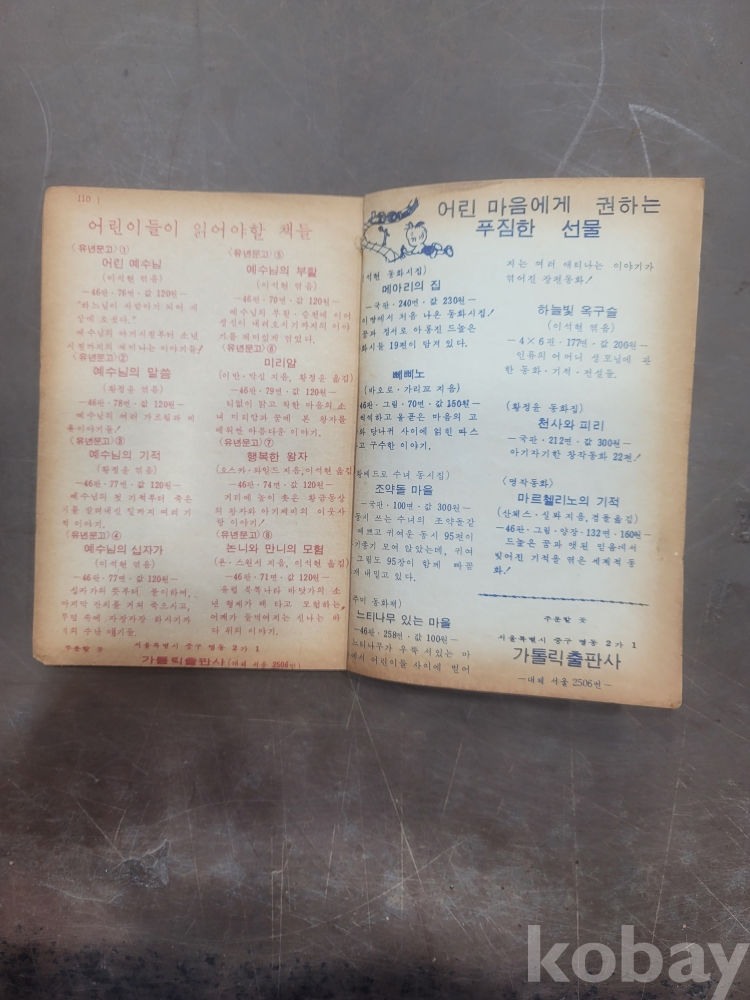 110
어린이들이 읽어야할 책들
(유년문고)①
어린 예수님
(이석현 엮음)
—46판·76면·값 120원—
"하느님이 사람이 되어 세
상에 오셨다."
예수님의 아기시절부터 소년
시절까지의 재미나는 이야기들!
(유년문고)②
예수님의 말씀
(황정윤 엮음)
—46판·78면·값 120원—
예수님의 여러 가르침과 비
유이야기들!
(유년문고)③
예수님의 기적
(황정윤 엮음)
—46판·77면·값 120원—
예수님의 첫 기적부터 죽은
이를 살려내신 일까지 여러 기
적 이야기.
(유년문고)④
예수님의 십자가
(이석현 엮음)
—46판·77면·값 120원—
십자가의 뜻부터
마지막 잔치를 거쳐 죽으시고,
무덤 속에 하시기까
지의 수난 얘기들.
(유년문고)⑤
예수님의 부활
(이석현 엮음)
—46판·70면·값 120원—
예수님의 부활·승천에 이어
성신이 내려오시기까지의 이야
기를 재미있게 엮었다.
(유년문고)⑥
미리암
(이반·막심 지음, 황정윤 옮김)
—46판·79면·값 120원—
티없이 맑고 착한 마음의 소
녀 미리암과 꿈에 본 왕자를
에워싼 아름다운 이야기.
(유년문고)⑦
행복한 왕자
(오스카·와일드 지음, 이석현 옮김)
—46판·74면·값 120원—
거리에 높이 솟은 황금동상
의 왕자와 아기제비의 이웃사
랑 이야기!
(유년문고)⑧
논니와 만니의 모험
(욘·스웬서 지음, 이석현 옮김)
—46판·71면·값 120원—
유럽 북쪽나라 바닷가의 소
년 형제가 배 타고 모험하는,
어깨가 들먹여지는 신나는 바
다 위의 이야기.
주문할 곳 서울특별시 중구 명동 2가 1
가톨릭출판사 (대체 서울 2506번)
어린 마음에게 권하는
푸짐한 선물
석현 동화시집)
메아리의 집
—국판·240면·값 230원—
이땅에서 처음 나온 동화시집!
꿈과 정서로 아롱진 드높은
화시들 19편이 담겨 있다.
뻬삐노
(바오로·가리꼬 지음)
46판·그림·70면·값 150원—
척하고 올곧은 마음의 고
와 당나귀 사이에 얽힌 따스
고 구수한 이야기.
황베드로 수녀 동시집)
조약돌 마을
—국판·100면·값 300원—
동시 쓰는 수녀의 조약돌같
예쁘고 귀여운 동시 95편이
기종기 모여 앉았는데, 귀여
그림도 95장이 함께 빠꼼
게 내밀고 있다.
주미 동화책)
느티나무 있는 마을
—46판·258면·값 100원—
느티나무가 우뚝 서있는 마
에서 어린이들 사이에 벌어
지는 여러 재미나는 이야기가
엮어진 장편동화!
하늘빛 옥구슬
(이석현 엮음)
—4×6판·177면·값 200원—
인류의 어머니 성모님에 관
한 동화·기적·전설들.
(황정윤 동화집)
천사와 피리
—국판·212면·값 300원—
아기자기한 창작동화 22편!
(명작동화)
마르첼리노의 기적
(산체스·실바 지음, 걸물 옮김)
—46판·그림·양장·132면·160원—
드높은 꿈과 앳된 믿음에서
빚어진 기적을 엮은 세계적 동
화!
주문할 곳
서울특별시 중구 명동 2가 1
가톨릭출판사
—대체 서울 2506번—
kobay